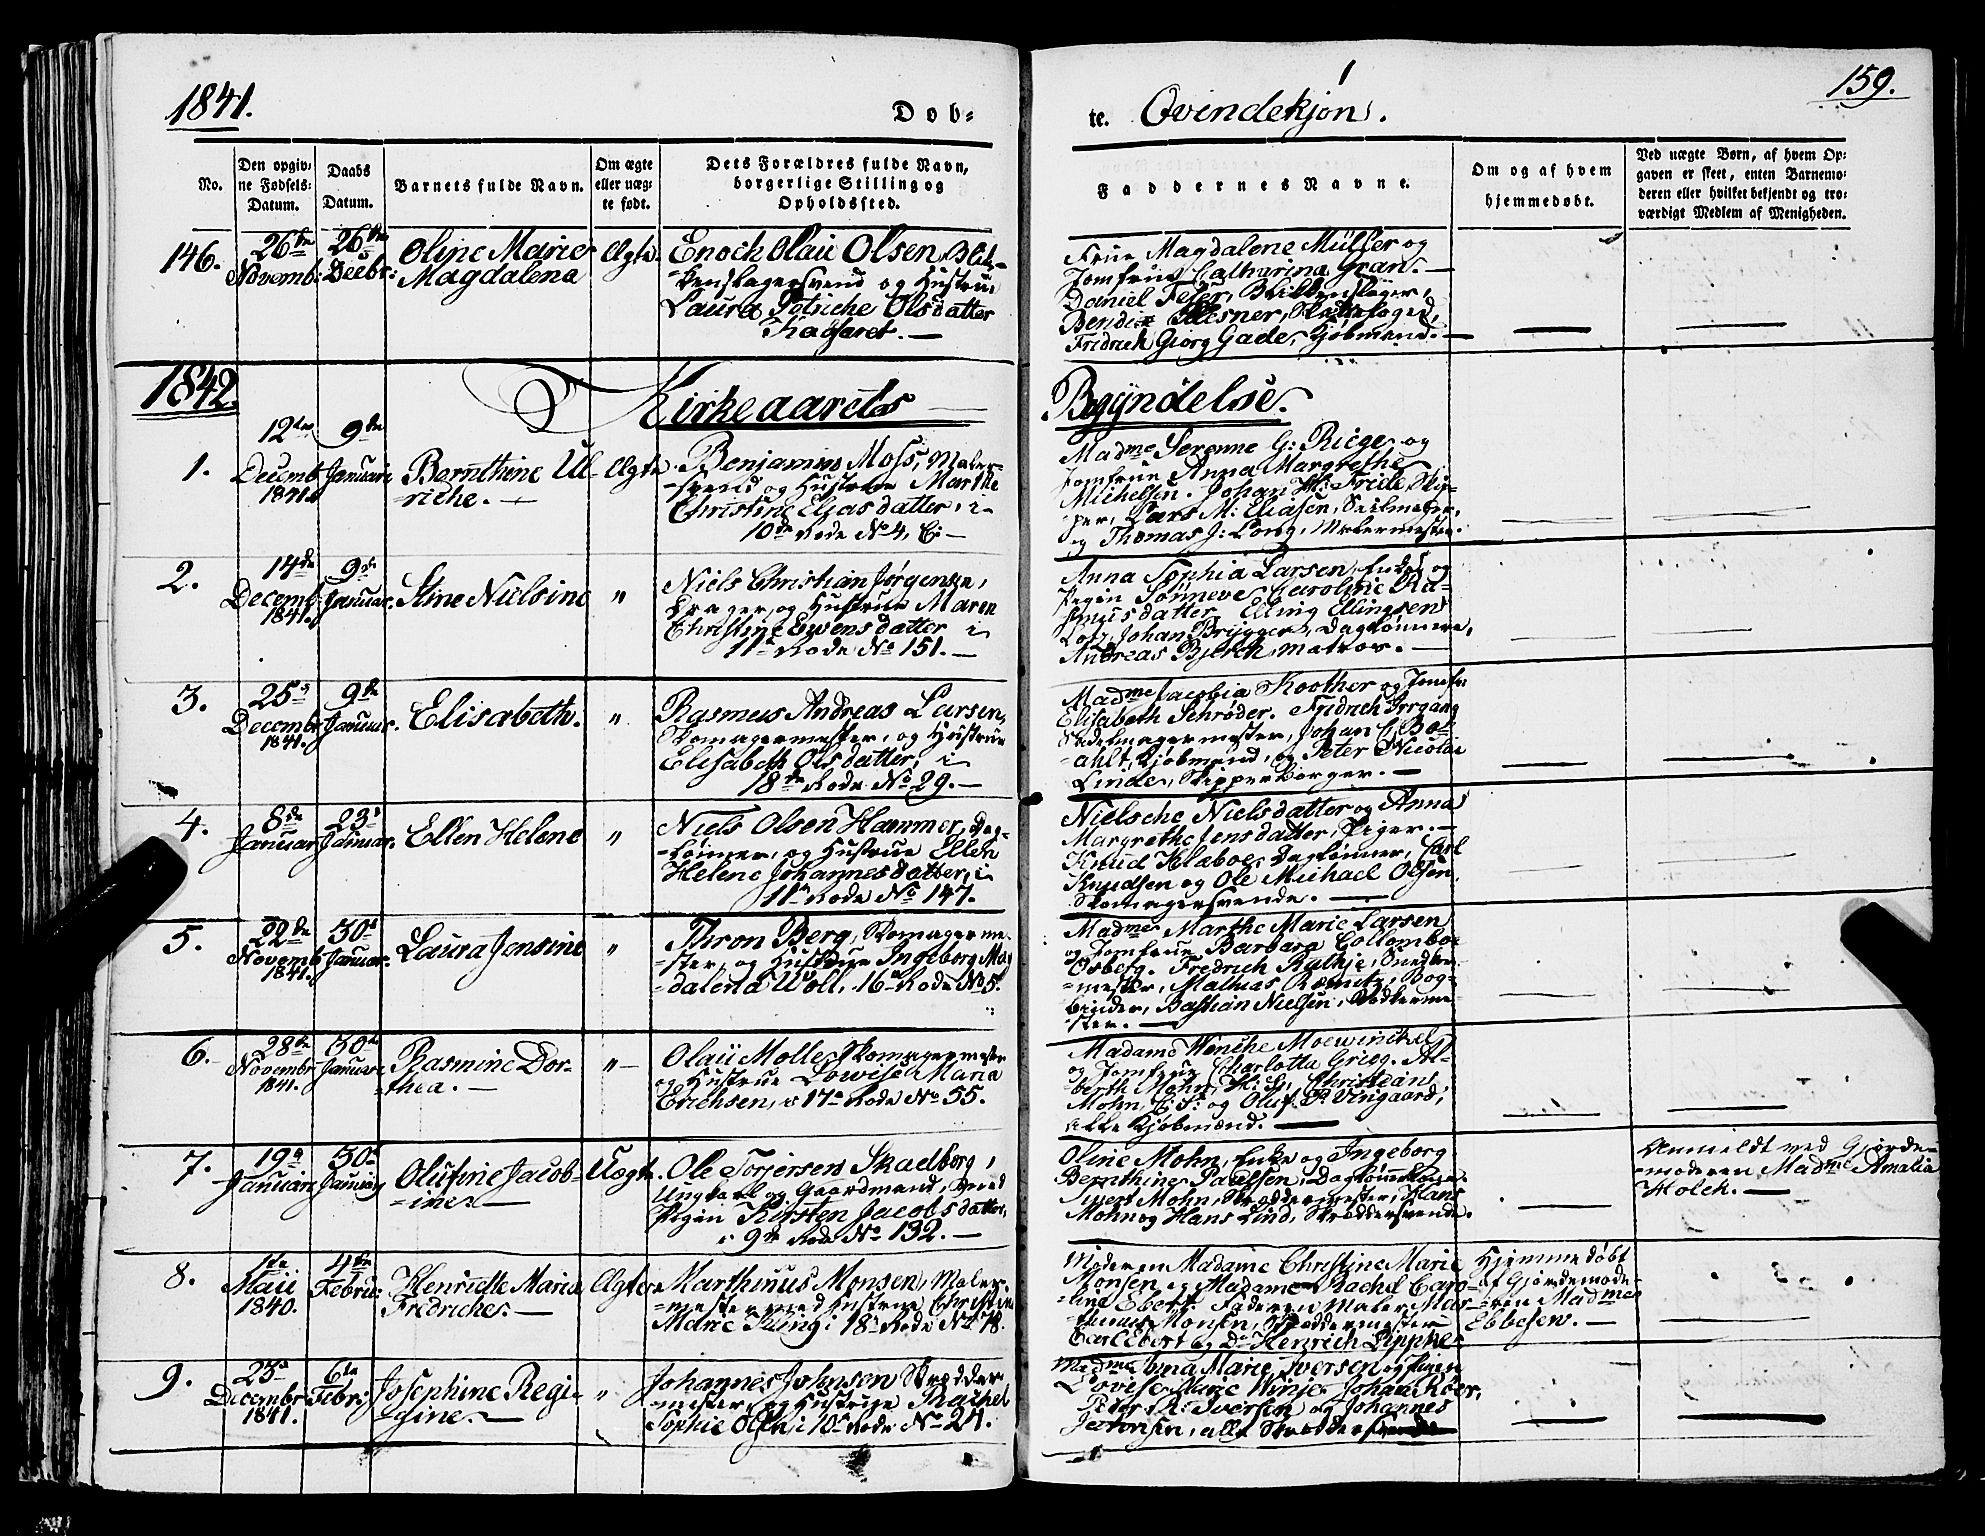 1841.
Døb-
te. Qvindekjøn.
159.
No.
Den opgiv-
ne Fødsels-
Datum.
Daabs
Datum.
Barnets fulde Navn.
Om ægte
eller uæg-
te født.
Dets Forældres fulde Navn,
borgerlige Stilling og
Opholdssted.
Faddernes Navne.
Om og af hvem
hjemmedøbt.
Ved uægte Børn, af hvem Op-
gaven er skeet, enten Barnemo-
deren eller hvilket bekjendt og tro-
værdigt Medlem af Menigheden.
146.
26de
Novembr:
26de
Decbr:
Oline Marie
Magdalena
Ægte
Enoch Olaii Olsen, Blik-
-kenslagersvend og Hustrue
Laura Petriche Olsdatter
Frue Magdalene Müller og
Jomfrue Catharina Gran.
Daniel Feser, Blikkenslager,
Fridrich Giörg Gade, Kjøbmænd.
1842.
Kirkeaarets
Begyndelse.
1.
12te
Decemb
1841.
9de
Januari
Bernthine Ul-
-riche.
Ægte
Benjamin Moss, Maler-
-svend og Hustrue Marthe
Christine Eliasdatter, i
10de Rode No 4,
Madme Serenne G: Riege og
Jomfrue Anna Margrethe
Michelsen. Johan H: Friele Skip-
per, Lars M: Eliasen, Seilmager,
og Thomas J: Long, Malermester.
2.
14de
Decemb
1841.
9de
Januar.
Stine Nielsine
"
Niels Christian Jørgensen,
Drager, og Hustrue Maren
Christine Ewensdatter i
11te Rode No 151.
Anna Sophia Larsen, Enke og
Pigen Sønneve Caroline Ra-
smusdatter, Elling Ellingsen
Johan Brygger, Daglønnere,
Andreas Bjerck, Matros.
3.
25de
Decembr
1841.
9de
Januar.
Elisabeth.
"
Rasmus Andreas Larsen,
Skomagermester, og Hustrue
Elisabeth Olsdatter, i
18de Rode No 29.
Madme Jacobia Koother og Jomfr
Elisabeth Schrøder. Fridrich Irrgang
Sadelmagermester, Johan C: Bo-
-ahlt, Kjøbmand, og Peter Nicolai
Linde, Skipperborger.
4.
8de
Januar
23de
Januar.
Ellen Helene
"
Niels Olsen Hammer, Dag-
-lønner, og Hustrue Ellen
Helene Johannesdatter, i
11te Rode No 147.
Nielsche Nielsdatter og Anna
Margrethe Jensdatter, Piger.
Knud Klaboe, Daglønner, Carl
Knudsen og Ole Michael Olsen,
Skomagersvende.
5.
22de
Novemb
1841.
30te
Januar.
Laura Jensine
"
Thron Berg, Skomagerme-
-ster, og Hustrue Ingeborg Mag
dalena Woll, 16de Rode No 5.
Madme Marthe Marie Larsen
og Jomfrue Barbara Collomboe
Osberg. Fredrich Rathje, Snedker-
-mester, Mathias Remitz, Bog-
binder, Bastian Nielsen, Sadlerme-
-ster.
6.
28de
Novembr
1841.
30te
Januar
Rasmine Dor-
-thea.
"
Olaii Molle, Skomagermester
og Hustrue Lowise Maria
Erichsen, i 17de Rode No 55.
Madame Wenche Moewinckel
og Jomfrue Charlotta Grieg. Al-
berth Mohn, H: Sv, Christian
Mohn, og Oluf R. Vingaard,
alle Kjøbmænd.
7.
19de
Januari
30te
Januar
Olufine Jacob-
-ine
Uægte
Ole Torjersen Skadberg,
Ungkarl og Gaardmand, med
Pigen Kirsten Jacobsdatter,
i 9de Rode No 132.
Oline Mohn, Enke og Ingeborg
Bernthine Paulsen, Dagløn
Siwert Mohn, Skræddermester, Hans
Mohn og Hans Lind, Skræddersvende.
Anmeldt ved Gjorde-
-moderen Madme Amalia
Holck.
8.
1ste
Maii
1840.
4de
Febru
Henriette Maria
Fredriche.
Ægte
Marthinus Monsen, Maler-
-mester med Hustrue Christine
Marie Kling i 18de Rode No 78.
Moderen Madame Christine Marie
Monsen og Madame Rachel Caro-
-line Ebert. Faderen Maler Mar-
-thinus Monsen, Skræddermester
Carl Ebert og Do Henrich Lippner
Hjemmedøbt
af Gjordemode-
-ren Madme
Ebbesen.
9.
25de
Decembr
1841.
6te
Febr:
Josephine Regi-
-gine.
"
Johannes Johnson Skrædder
-mester, og Hustrue Rachel
Sophie Olsen i 10de Rode No 21.
Madme Anna Marie Iversen og Pigen
Lovise Marie Winje. Johan Röer,
Peder A: Iversen og Johannes
alle Skræddersvende